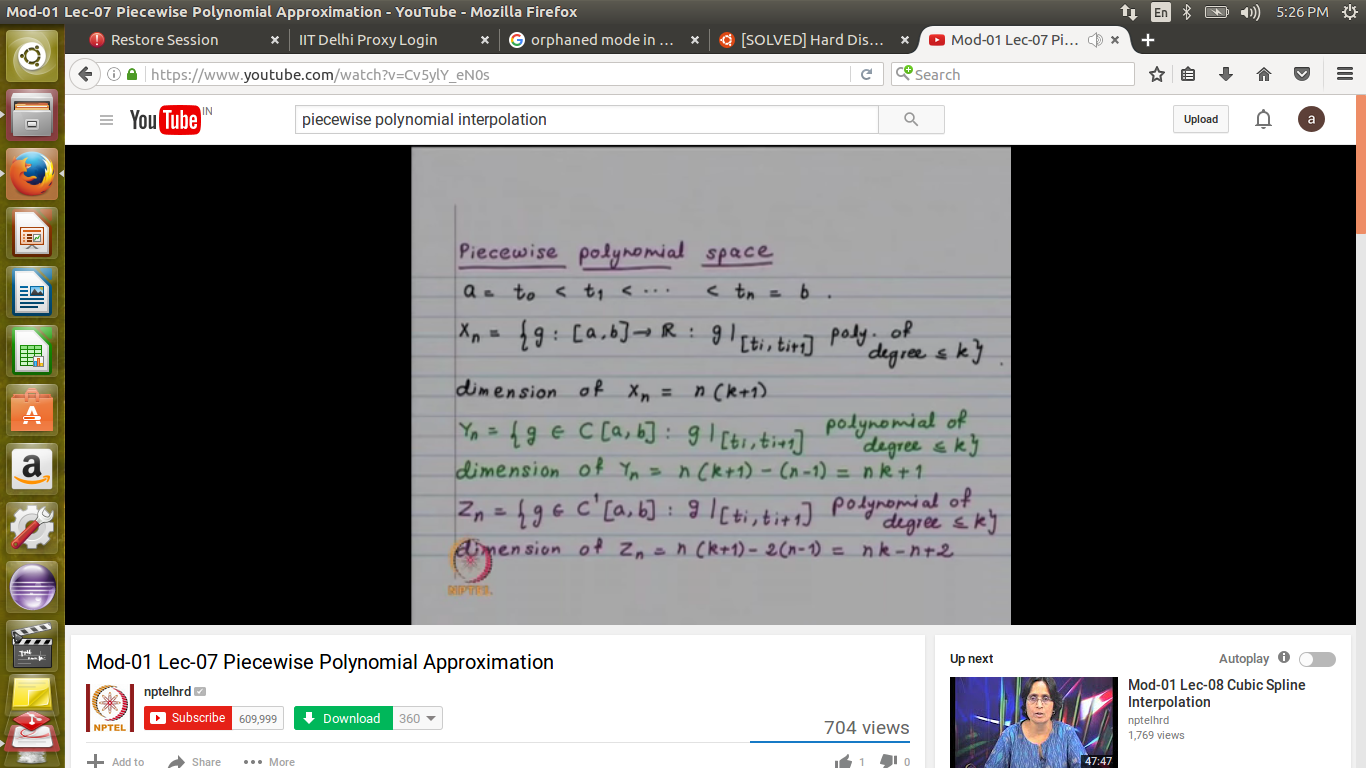 Mod-01 Lec-07 Piecewise Polynomial Approximation - YouTube - Mozilla Firefox
En
5:26 PM
Restore Session
IIT Delhi Proxy Login
orphaned mode in ...
[SOLVED] Hard Dis...
Mod-01 Lec-07 Pi...
https://www.youtube.com/watch?v=Cv5ylY_eN0s
Search
YouTube IN
piecewise polynomial interpolation
Upload
a
Piecewise polynomial space
a = t₀ < t₁ < ··· < tₙ = b .
Xₙ = { g : [a,b] → ℝ : g |[tᵢ, tᵢ₊₁] poly. of
degree ≤ k } .
dimension of Xₙ = n (k+1)
Yₙ = { g ∈ C [a,b] : g |[tᵢ, tᵢ₊₁] polynomial of
degree ≤ k }
dimension of Yₙ = n (k+1) - (n-1) = nk+1
Zₙ = { g ∈ C' [a,b] : g |[tᵢ, tᵢ₊₁] polynomial of
degree ≤ k }
dimension of Zₙ = n (k+1) - 2(n-1) = nk-n+2
NPTEL
Mod-01 Lec-07 Piecewise Polynomial Approximation
nptelhrd
NPTEL
Subscribe 609,999
Download 360
704 views
Add to
Share
More
1
0
Up next
Autoplay
Mod-01 Lec-08 Cubic Spline
Interpolation
nptelhrd
1,769 views
47:47